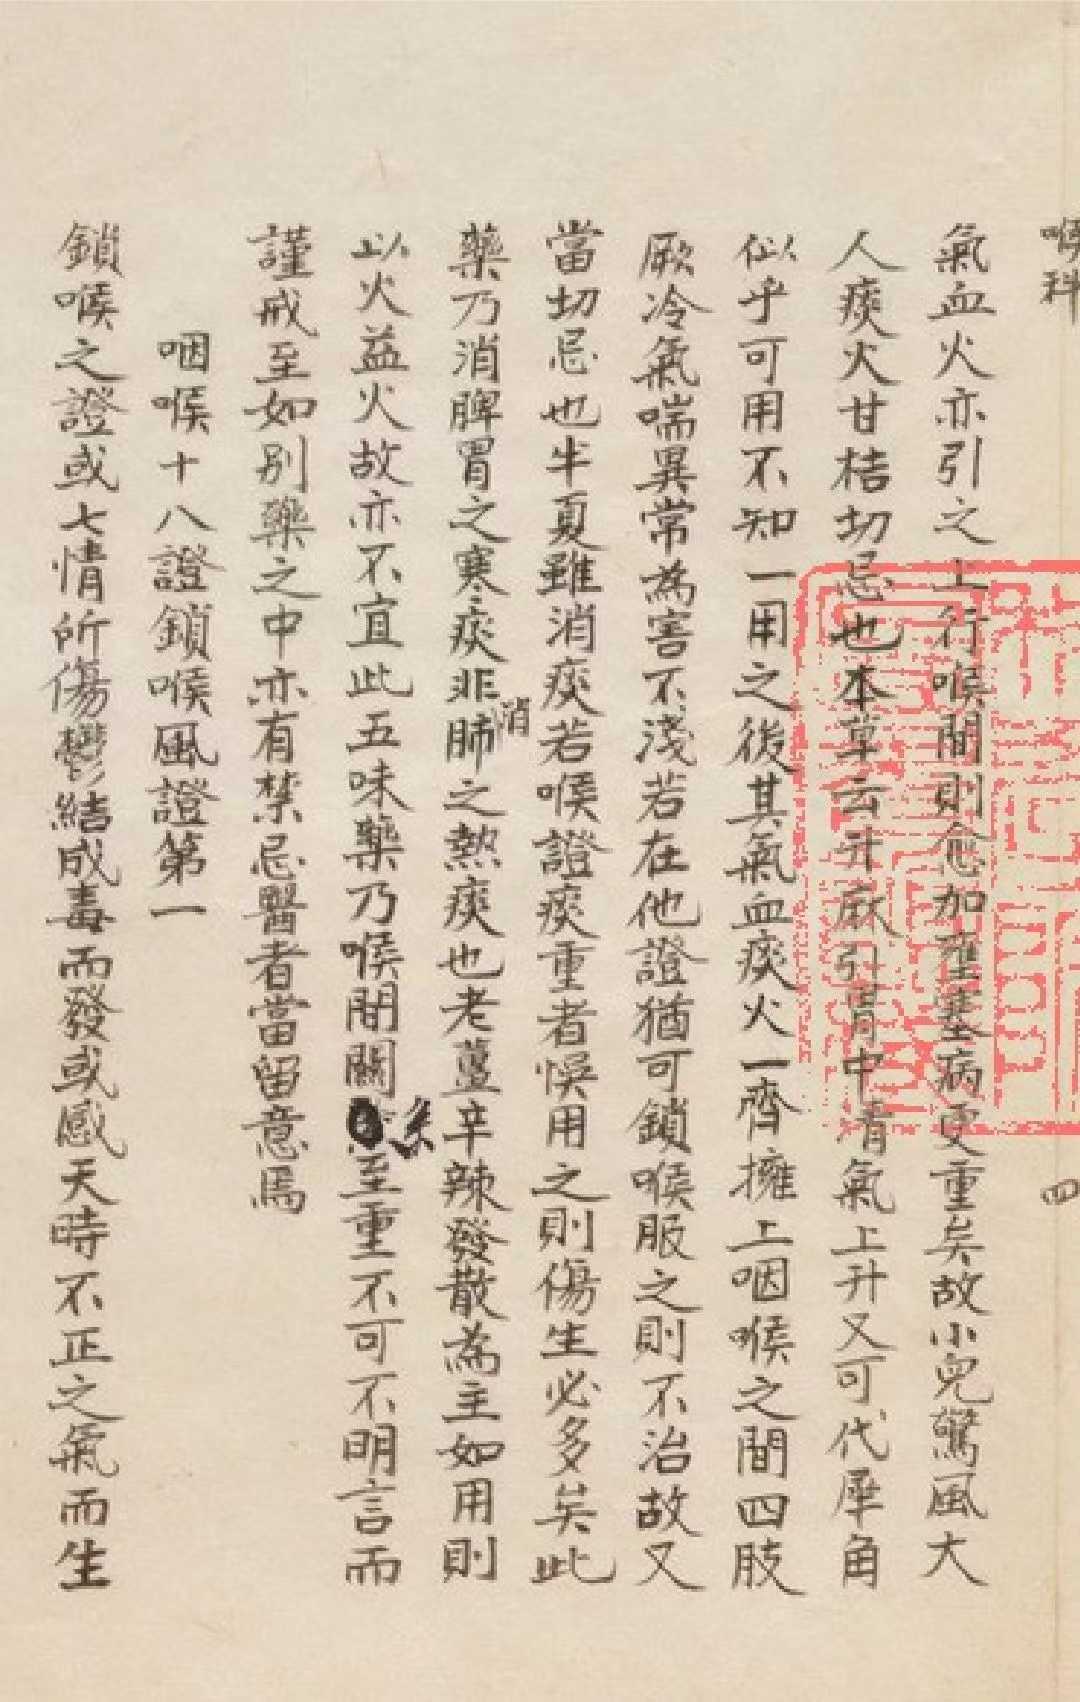 喉科
四
氣血火亦引之上行喉間則愈加壅塞病更重矣故小兒驚風大
人痰火甘桔切忌也本草云升麻引胃中青氣上升又可代犀角
似乎可用不知一用之後其氣血痰火一齊擁上咽喉之間四肢
厥冷氣喘異常為害不淺若在他證猶可鎖喉服之則不治故又
當切忌也半夏雖消痰若喉證痰重者悞用之則傷生必多矣此
藥乃消脾胃之寒痰非消肺之熱痰也老薑辛辣發散為主如用則
以火益火故亦不宜此五味藥乃喉間關係至重不可不明言而
謹戒至如別藥之中亦有禁忌醫者當留意焉
咽喉十八證鎖喉風證第一
鎖喉之證或七情所傷鬱結成毒而發或感天時不正之氣而生